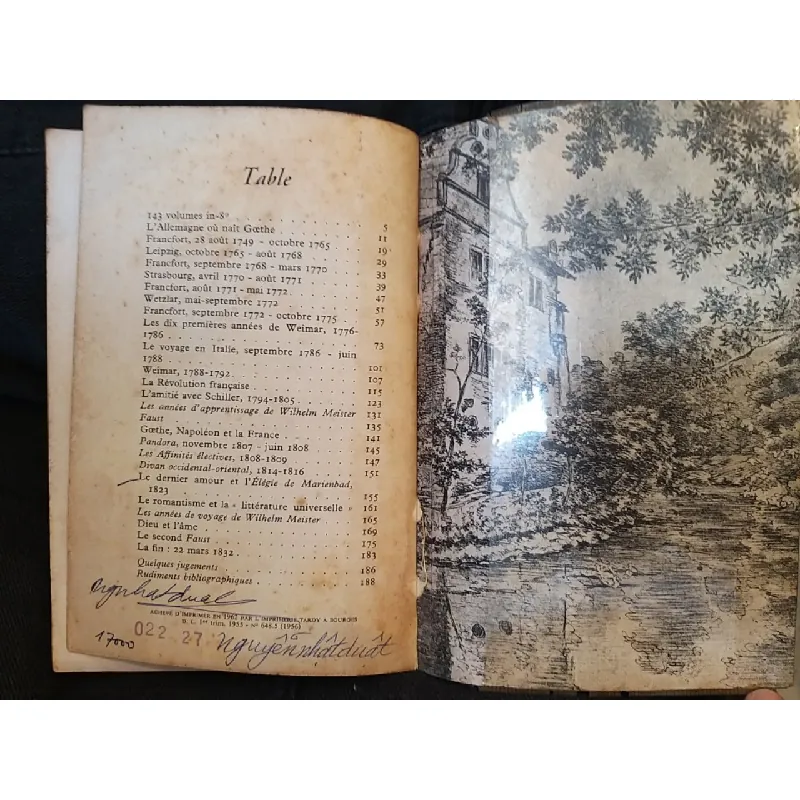 Table
143 volumes in-8° . . . . . . . . . . . . 5
L'Allemagne où naît Gœthe . . . . . . . 11
Francfort, 28 août 1749 - octobre 1765 . . 19
Leipzig, octobre 1765 - août 1768 . . . . 29
Francfort, septembre 1768 - mars 1770 . . 33
Strasbourg, avril 1770 - août 1771 . . . . 39
Francfort, août 1771 - mai 1772 . . . . . 47
Wetzlar, mai-septembre 1772 . . . . . . 51
Francfort, septembre 1772 - octobre 1775 . . 57
Les dix premières années de Weimar, 1776-
1786 . . . . . . . . . . . . 73
Le voyage en Italie, septembre 1786 - juin
1788 . . . . . . . . . . . . 101
Weimar, 1788-1792 . . . . . . . . . . 107
La Révolution française . . . . . . . . 115
L'amitié avec Schiller, 1794-1805 . . . . . 123
Les années d'apprentissage de Wilhelm Meister 131
Faust . . . . . . . . . . . . 135
Gœthe, Napoléon et la France . . . . . . 141
Pandora, novembre 1807 - juin 1808 . . . . 145
Les Affinités électives, 1808-1809 . . . . . 147
Divan occidental-oriental, 1814-1816 . . . . 151
Le dernier amour et l'Élégie de Marienbad,
1823 . . . . . . . . . . . . 155
Le romantisme et la « littérature universelle » 161
Les années de voyage de Wilhelm Meister . . 165
Dieu et l'âme . . . . . . . . . . . 169
Le second Faust . . . . . . . . . . 175
La fin : 22 mars 1832 . . . . . . . . . 183
Quelques jugements . . . . . . . . . 186
Rudiments bibliographiques . . . . . . . 188
ngnhatduat
ACHEVÉ D'IMPRIMER EN 1962 PAR L'IMPRIMERIE TARDY A BOURGES
D. L. 1er TRIM. 1953 - Nº 648.5 (1956)
17000 022 27 nguyễn nhật duật